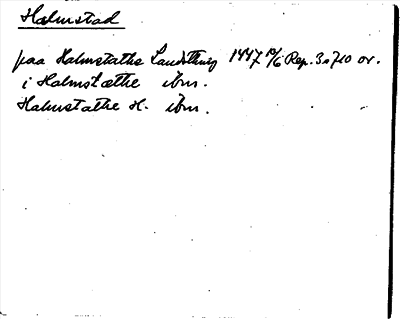 Halmstad
paa Halmstathe Landsthing 1447 19/6 Rep. 3n710 or.
i Halmstæthe ibm.
Halmstathe H. ibm.